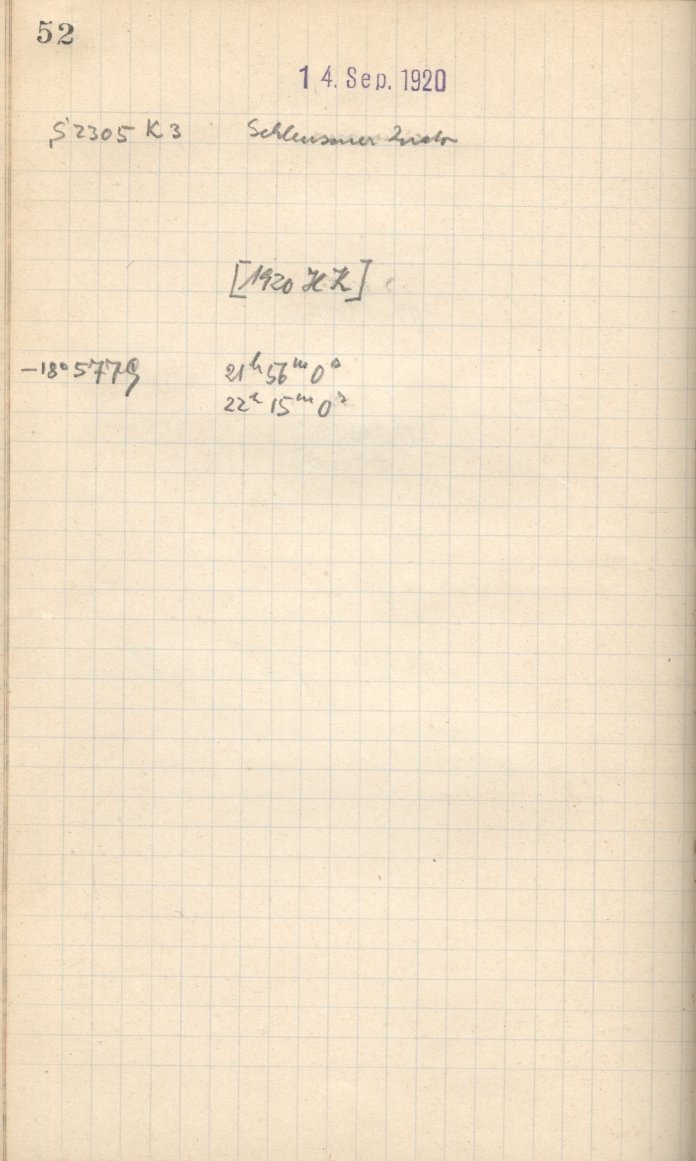 52
14. Sep. 1920
S 2305 K 3 Schleussner
[1920 HK]
-18° 5779 21h 56m 0s
22h 15m 0s